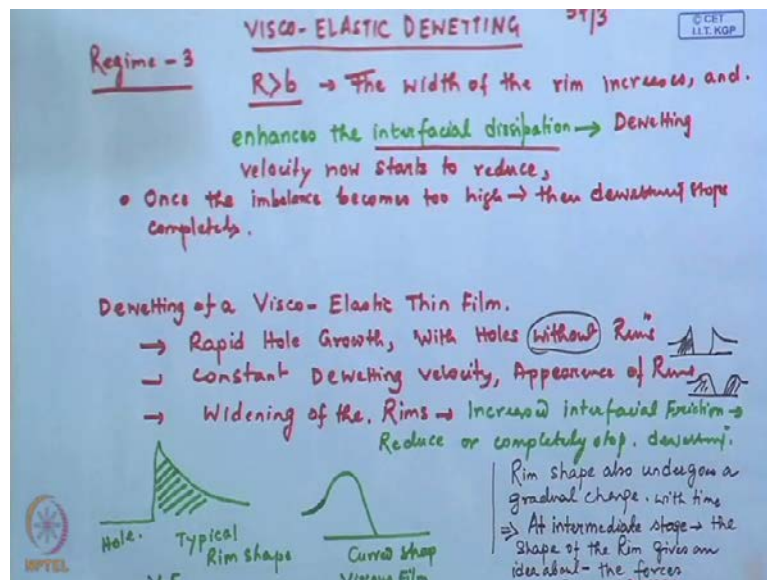 VISCO-ELASTIC DEWETTING 34/3
© CET
I.I.T. KGP
Regime - 3
R>b → The width of the rim increases, and.
enhances the interfacial dissipation → Dewetting
velocity now starts to reduce,
• Once the imbalance becomes too high → then dewetting stops
completely.
Dewetting of a Visco-Elastic Thin Film.
→ Rapid Hole Growth, With Holes without Rims
→ Constant Dewetting velocity, Appearence of Rims
→ Widening of the. Rims → Increased interfacial Friction →
Reduce or completely stop. dewetting.
Rim shape also undergoes a
gradual change. with time
⇒ At intermediate stage → the
Shape of the Rim gives an
idea about - the forces
Hole.
Typical
Rim shape
Curved shap
Viscous Film
NPTEL